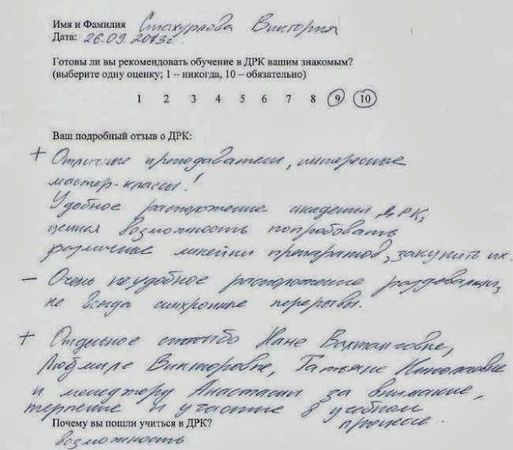 Имя и Фамилия Стахурлова Виктория
Дата: 26.09.2013г.
Готовы ли вы рекомендовать обучение в ДРК вашим знакомым?
(выберите одну оценку; 1 – никогда, 10 – обязательно)
1 2 3 4 5 6 7 8 9 10
Ваш подробный отзыв о ДРК:
+ Отличные преподаватели, интересные
мастер-классы!
Удобное расположение академии ДРК,
ценная возможность попробовать
различные линейки препаратов, закупить их.
– Очень неудобное расположение раздевалки,
не всегда синхронные перерывы.
+ Отдельное спасибо Нане Вахтанговне,
Людмиле Викторовне, Татьяне Николаевне
и менеджеру Анастасии за внимание,
терпение и участие в учебном
процессе.
Почему вы пошли учиться в ДРК?
возможность